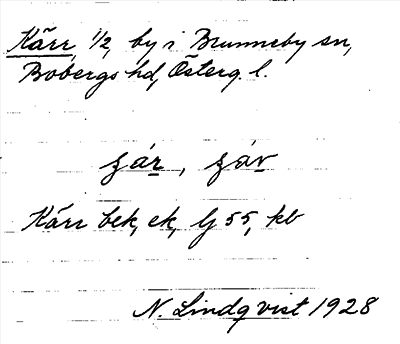 Kärr, 1/2, by i Brunneby sn,
Bobergs hd, Österg. l.
Kärr bek, ek, lj 55, kb
N. Lindqvist 1928